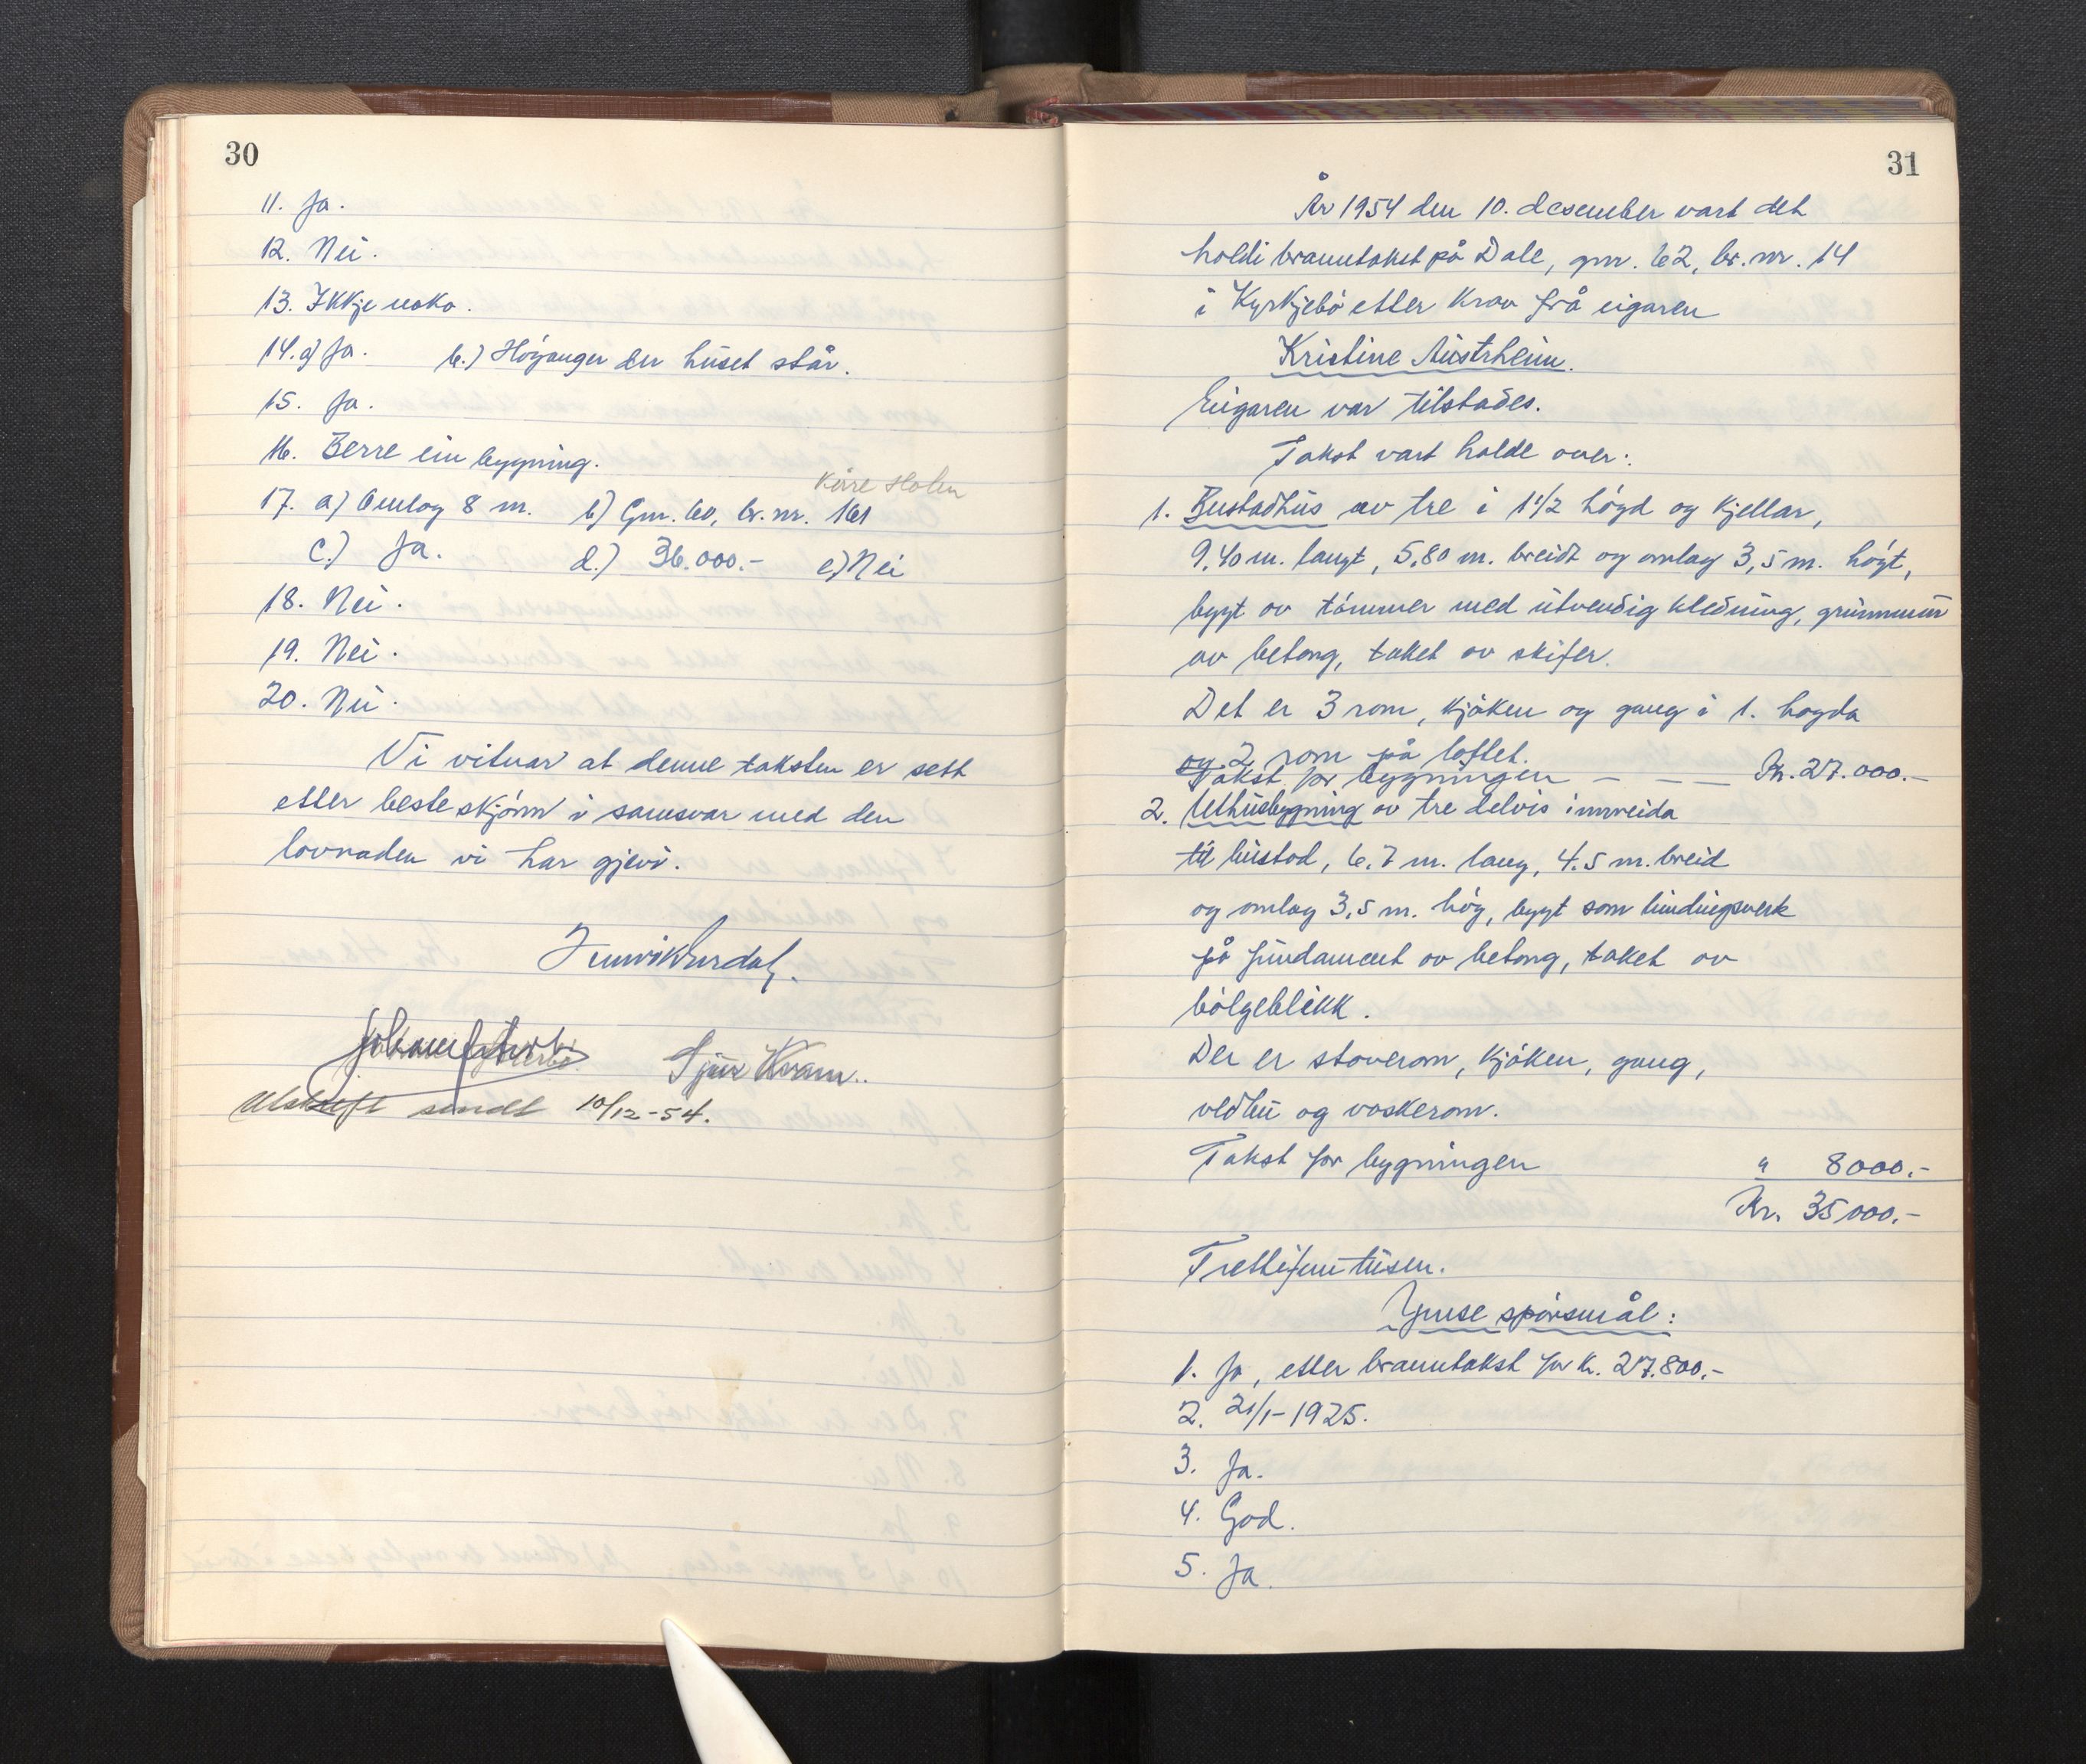 30
11. Ja.
12. Nei.
13. Ikkje noko.
14. a) Ja. b.) Höyanger der huset står.
15. Ja.
16. Berre ein bygning.
Kåre Holen
17. a) Omlag 8 m. b) Gnr. 60, br. nr. 161
c.) Ja. d.) 36.000.- e) Nei
18. Nei.
19. Nei.
20. Nei.
Vi vitnar at denne taksten er sett
etter beste skjönn i samsvar med den
lovnaden vi har gjevi.
Sjur Kvam..
Utskrift sendt 10/12-54.
31
År 1954 den 10. desember vart det
holdi branntakst på Dale, gnr. 62, br. nr. 14
i Kyrkjebö etter krav frå eigaren
Kristine Austrheim.
Eigaren var tilstades.
Takst vart halde over:
1. Bustadhus av tre i 1 1/2 högd og kjellar,
9,40 m. langt, 5,80 m. breidt og omlag 3,5 m. högt,
bygt av tömmer med utvendig kledning, grunnmur
av betong, taket av skifer.
Det er 3 rom, kjöken og gang i 1. hogda
og 2 rom på loftet.
Takst for bygningen — — — Kr. 27.000.-
2. Uthusbygning av tre delvis innreida
til bustad, 6.7 m. lang, 4.5 m. breid
og omlag 3,5 m. hög, bygt som bindingsverk
på fundament av betong, taket av
bölgeblikk.
Der er stoverom, kjöken, gang,
vedbu og vaskerom.
Takst for bygningen " 8000.-
Kr. 35000.-
Trettifemtusen.
Ymse spörsmål:
1. Ja, etter branntakst for kr. 27.800.-
2. 21/1-1925.
3. Ja.
4. God.
5. Ja.